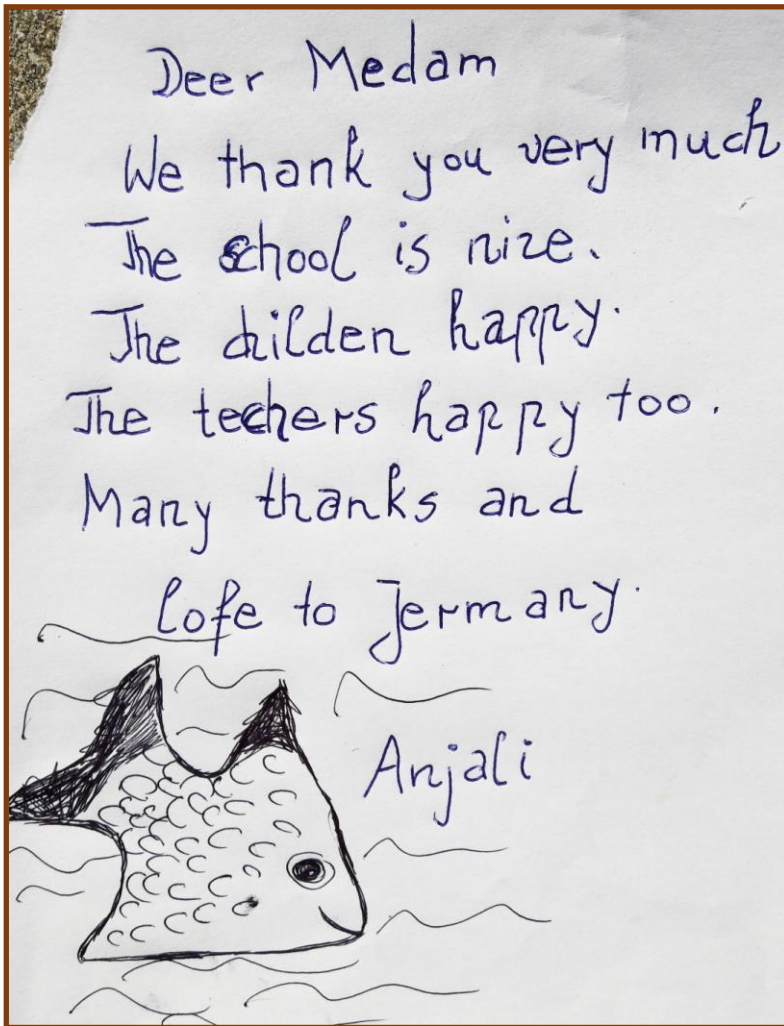 Deer Medam
We thank you very much
The school is nize.
The childen happy.
The techers happy too.
Many thanks and
lofe to Jermany.
Anjali